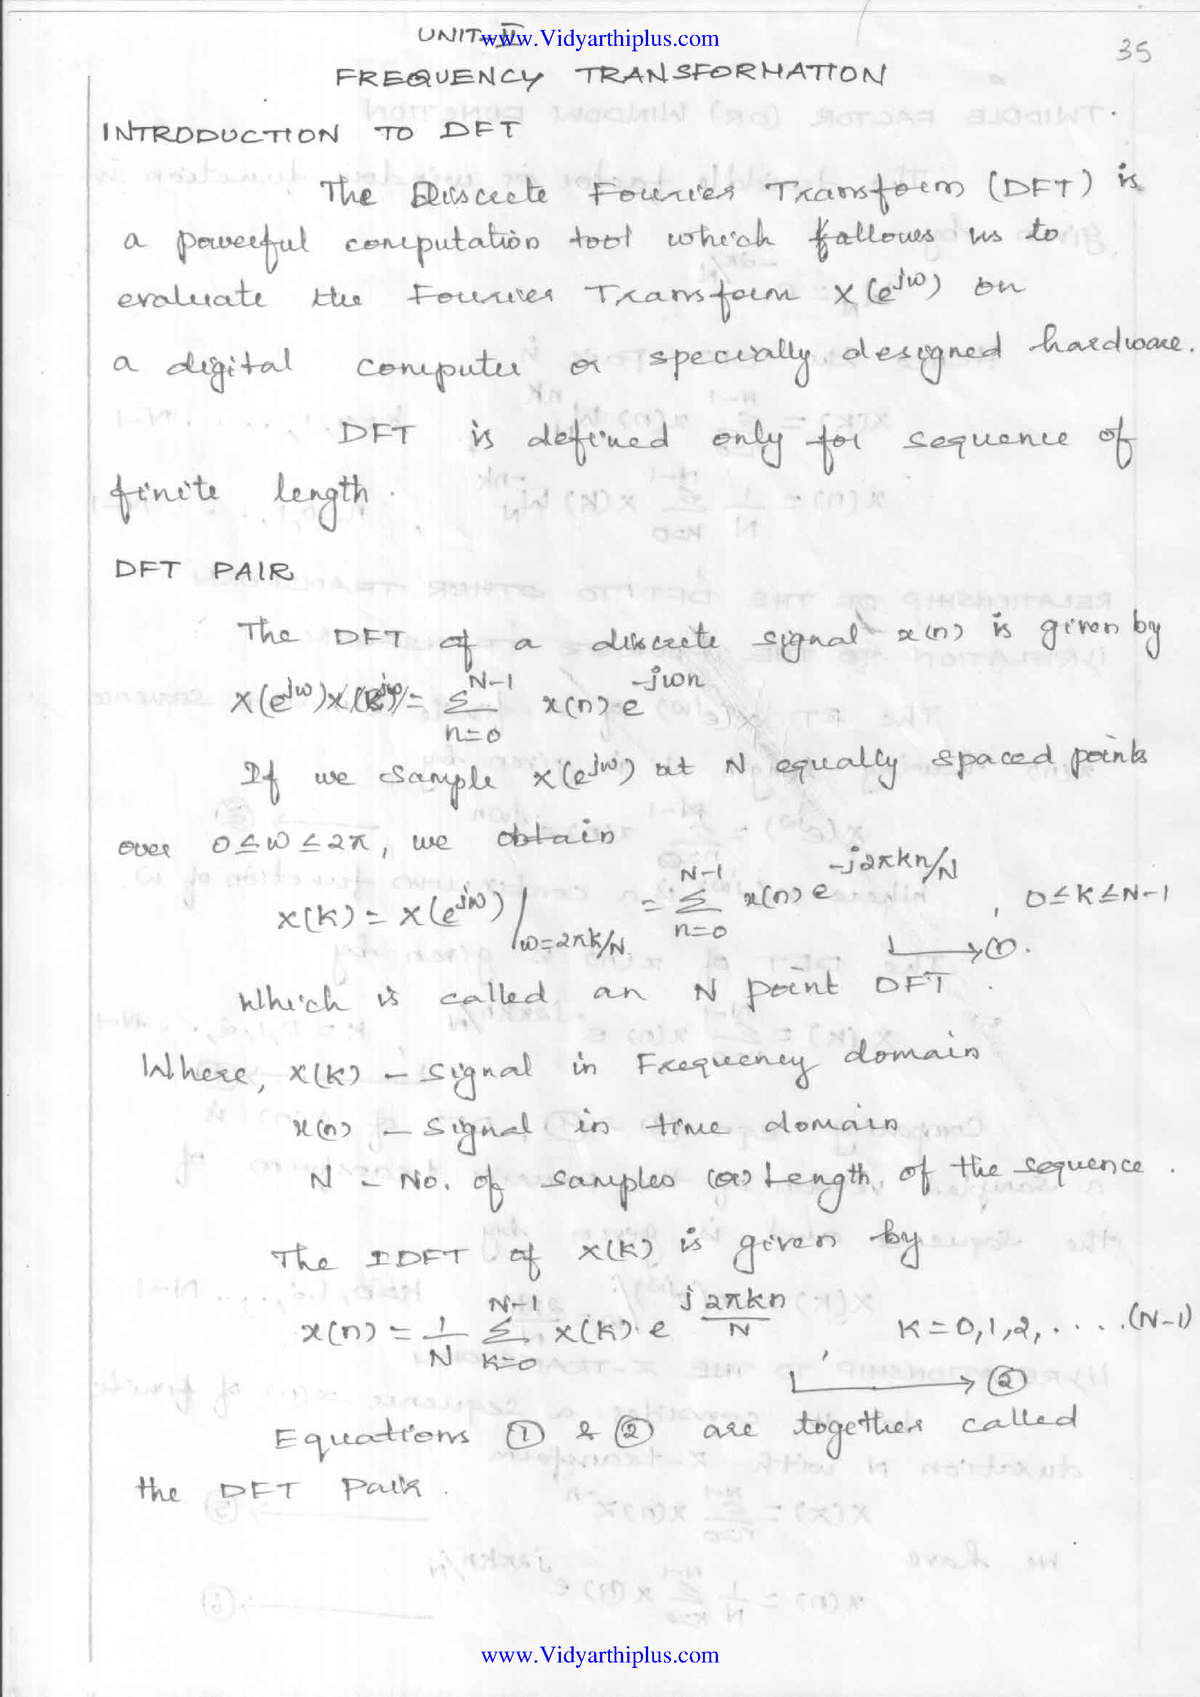 UNIT-II
www.Vidyarthiplus.com
35
FREQUENCY TRANSFORMATION
INTRODUCTION TO DFT
The Discrete Fourier Transform (DFT) is
a powerful computation tool which allows us to
evaluate the Fourier Transform X(e^jω) on
a digital computer or specially designed hardware.
DFT is defined only for sequence of
finite length.
DFT PAIR
The DFT of a discrete signal x(n) is given by
X(e^jω) = Σ_{n=0}^{N-1} x(n) · e^{-jωn}
If we sample X(e^jω) at N equally spaced points
over 0≤ω≤2π, we obtain
X(K) = X(e^jω) |_{ω=2πk/N} = Σ_{n=0}^{N-1} x(n) e^{-j2πkn/N}, 0≤K≤N-1
→ ①.
Which is called an N point DFT.
Where, X(K) - Signal in Frequency domain
x(n) - Signal in time domain
N - No. of samples (or) Length of the sequence.
The IDFT of X(K) is given by
x(n) = 1/N Σ_{k=0}^{N-1} X(K) · e^{j2πkn/N}, K=0,1,2,.....(N-1)
→ ②
Equations ① & ② are together called
the DFT Pair.
www.Vidyarthiplus.com